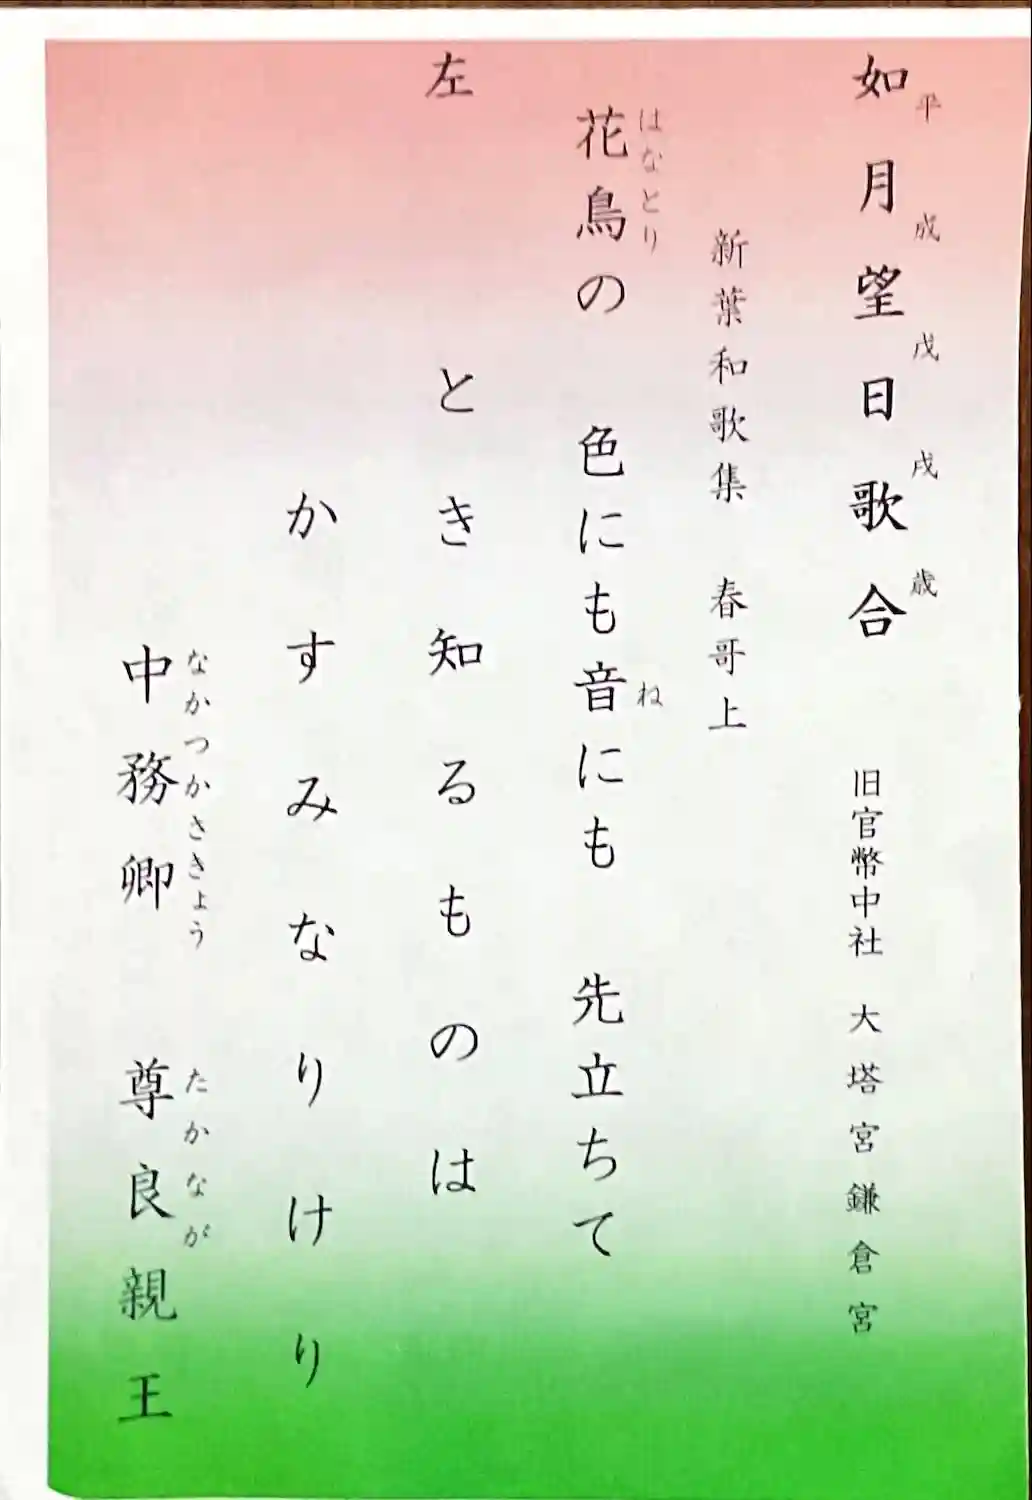 如月望日歌合 旧官幣中社 大塔宮鎌倉宮
平成戊戌歳
新葉和歌集 春哥上
花鳥の 色にも音にも 先立ちて
はなとり ね
左 とき知るものは
かすみなりけり
中務卿 尊良親王
なかつかさきょう たかなが